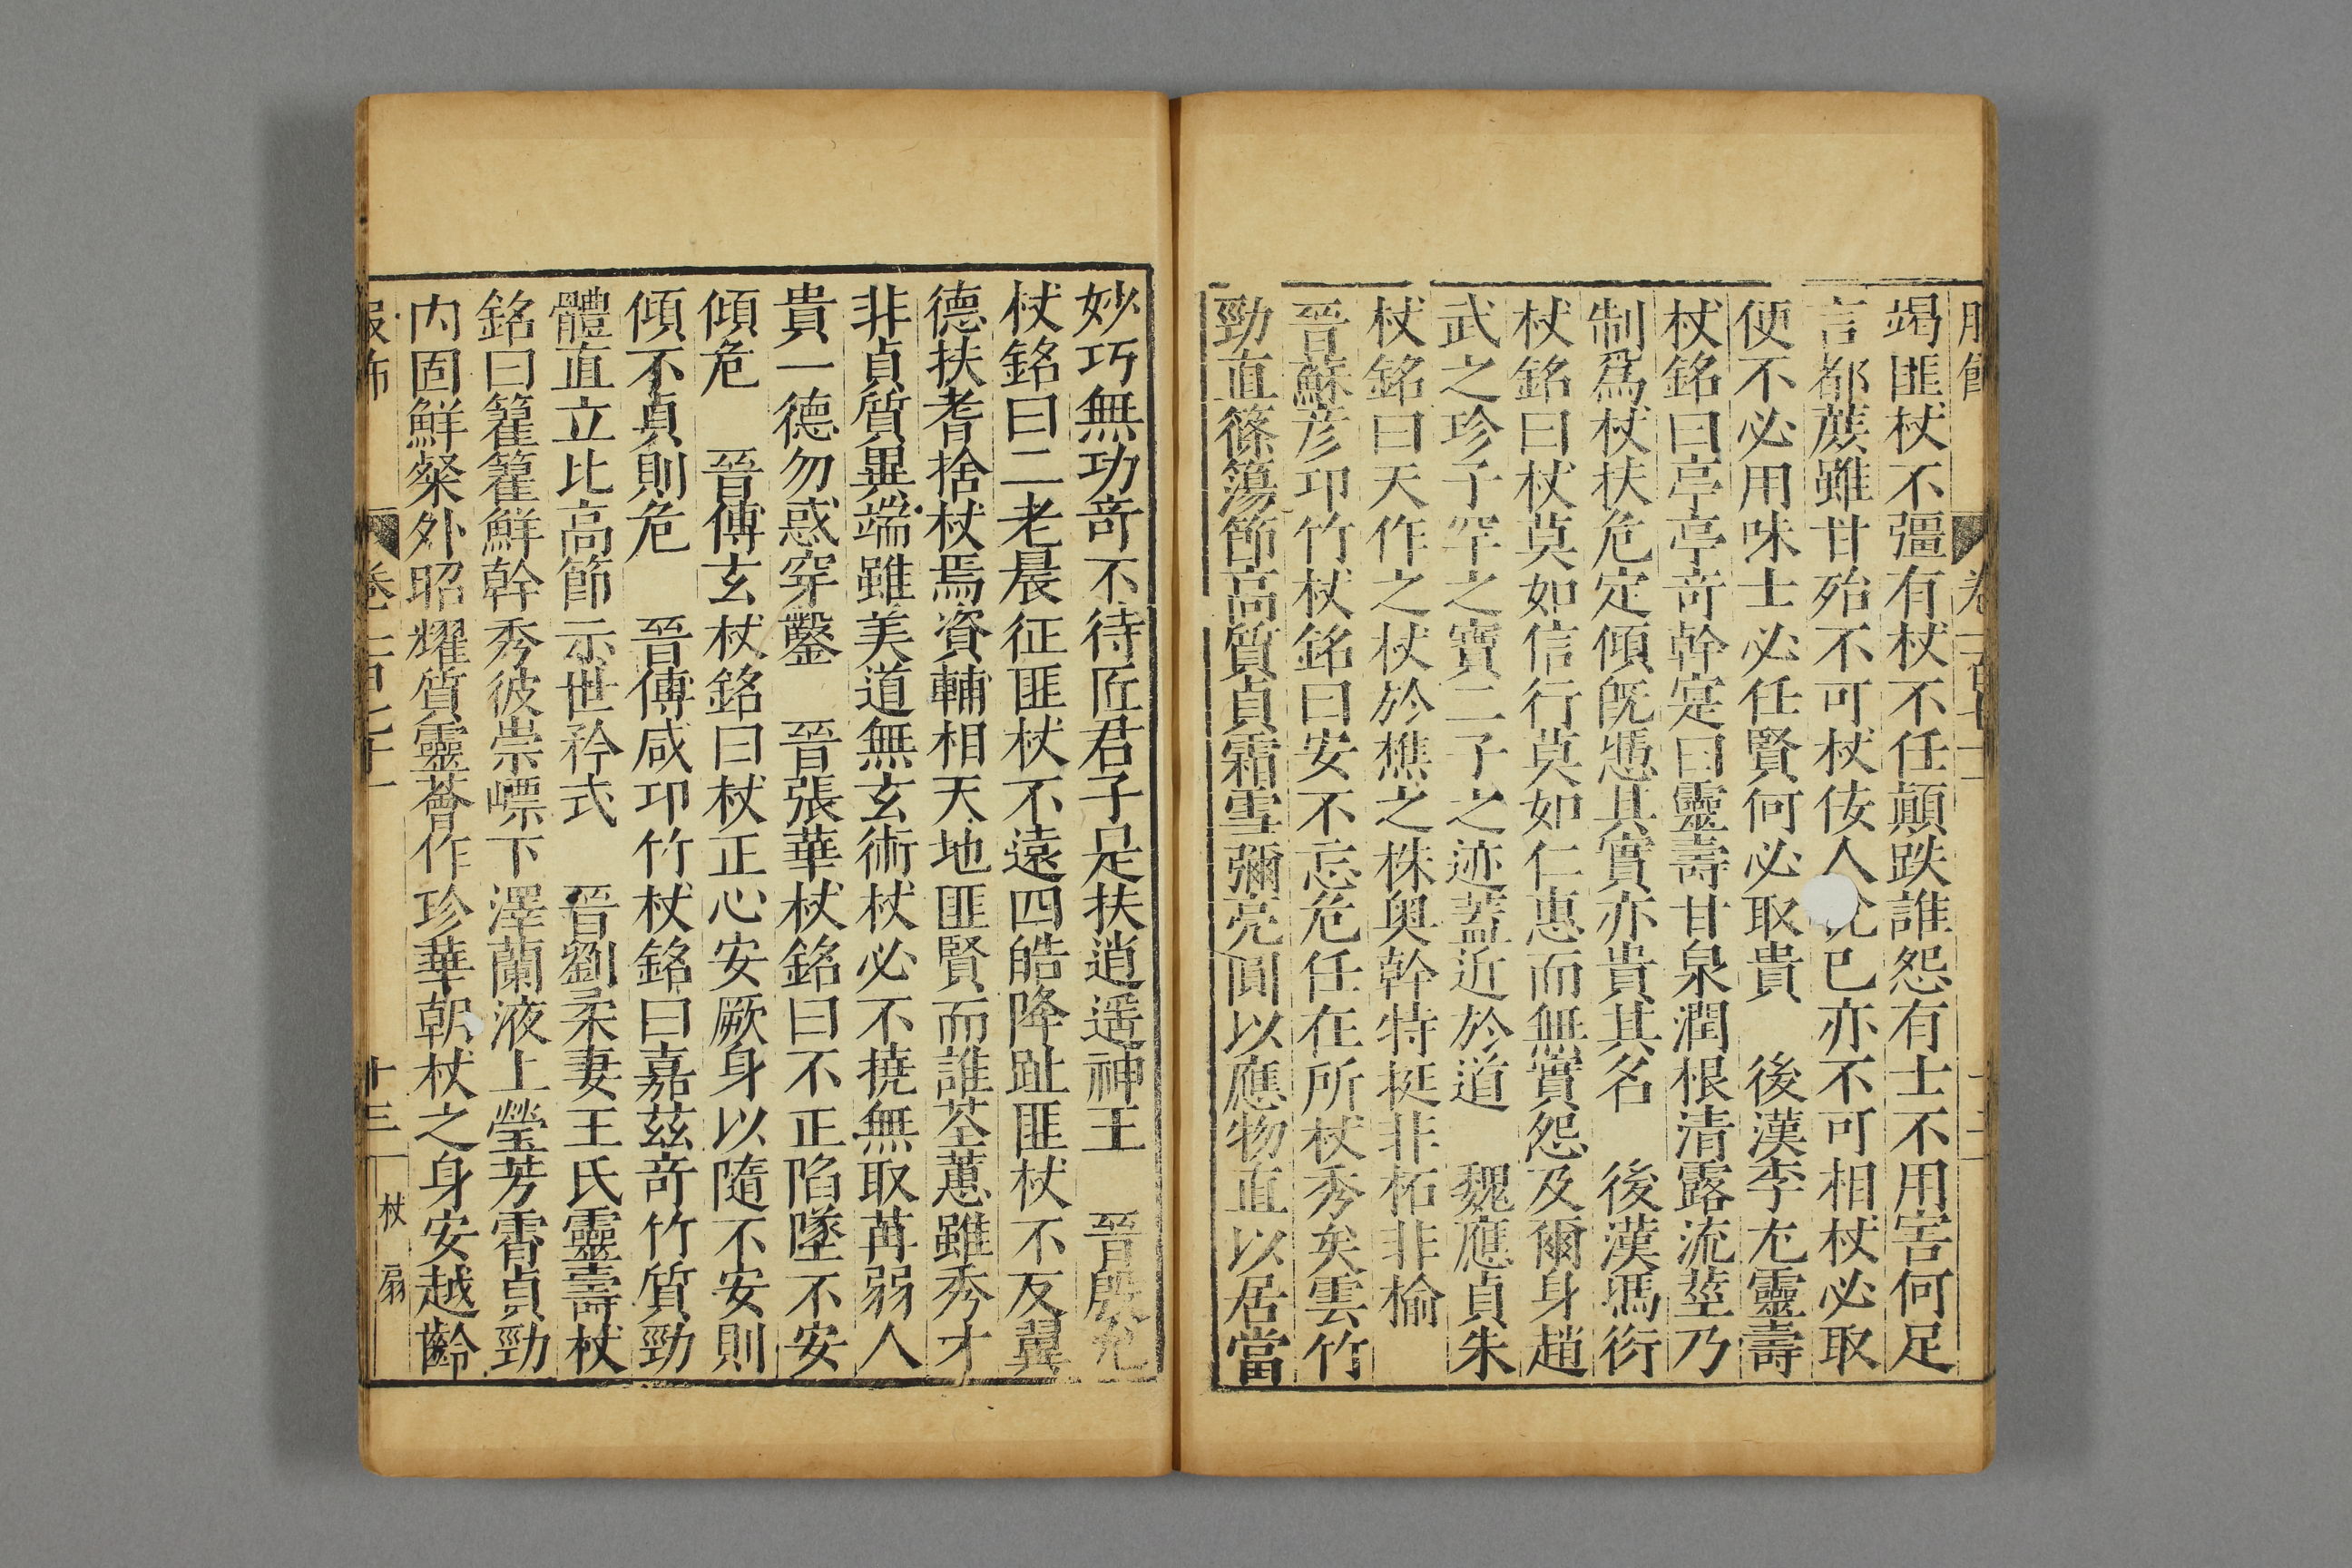 竭匪杖不彊有杖不任顛跌誰怨有士不用害何足
言都蔗雖甘殆不可杖佞人 已亦不可相杖必取
便不必用味士必任賢何必取貴　後漢李尤靈壽
杖銘曰亭亭奇幹寔曰靈壽甘泉潤根清露流莖乃
制爲杖扶危定傾旣憑其實亦貴其名　後漢馮衍
杖銘曰杖莫如信行莫如仁惠而無實怨及爾身趙
武之珍子罕之寶二子之迹葢近於道　魏應貞朱
杖銘曰天作之杖於樵之株奥幹特挺非柘非楡
晉蘇彦邛竹杖銘曰安不忘危任在所杖秀矣雲竹
勁直篠簜節高質貞霜雪彌亮圓以應物直以居當
妙巧無功奇不待匠君子足扶逍遥神王　晉殷允
杖銘曰二老晨征匪杖不遠四皓降趾匪杖不反翼
德扶耆捨杖焉資輔相天地匪賢而誰荃蕙雖秀才
非貞質異端雖美道無玄術杖必不撓無取苒弱人
貴一德勿惑穿鑿　晉張華杖銘曰不正陷墜不安
傾危　晉傅玄杖銘曰杖正心安厥身以隨不安則
傾不貞則危　晉傅咸邛竹杖銘曰嘉茲奇竹質勁
體直立比高節示世矜式　晉劉柔妻王氏靈壽杖
銘曰籊籊鮮幹秀彼崇嶫下澤蘭液上瑩芳霄貞勁
内固鮮粲外昭耀質靈薈作珍華朝杖之身安越齡
服飾　卷二百七十一　十三　杖　扇